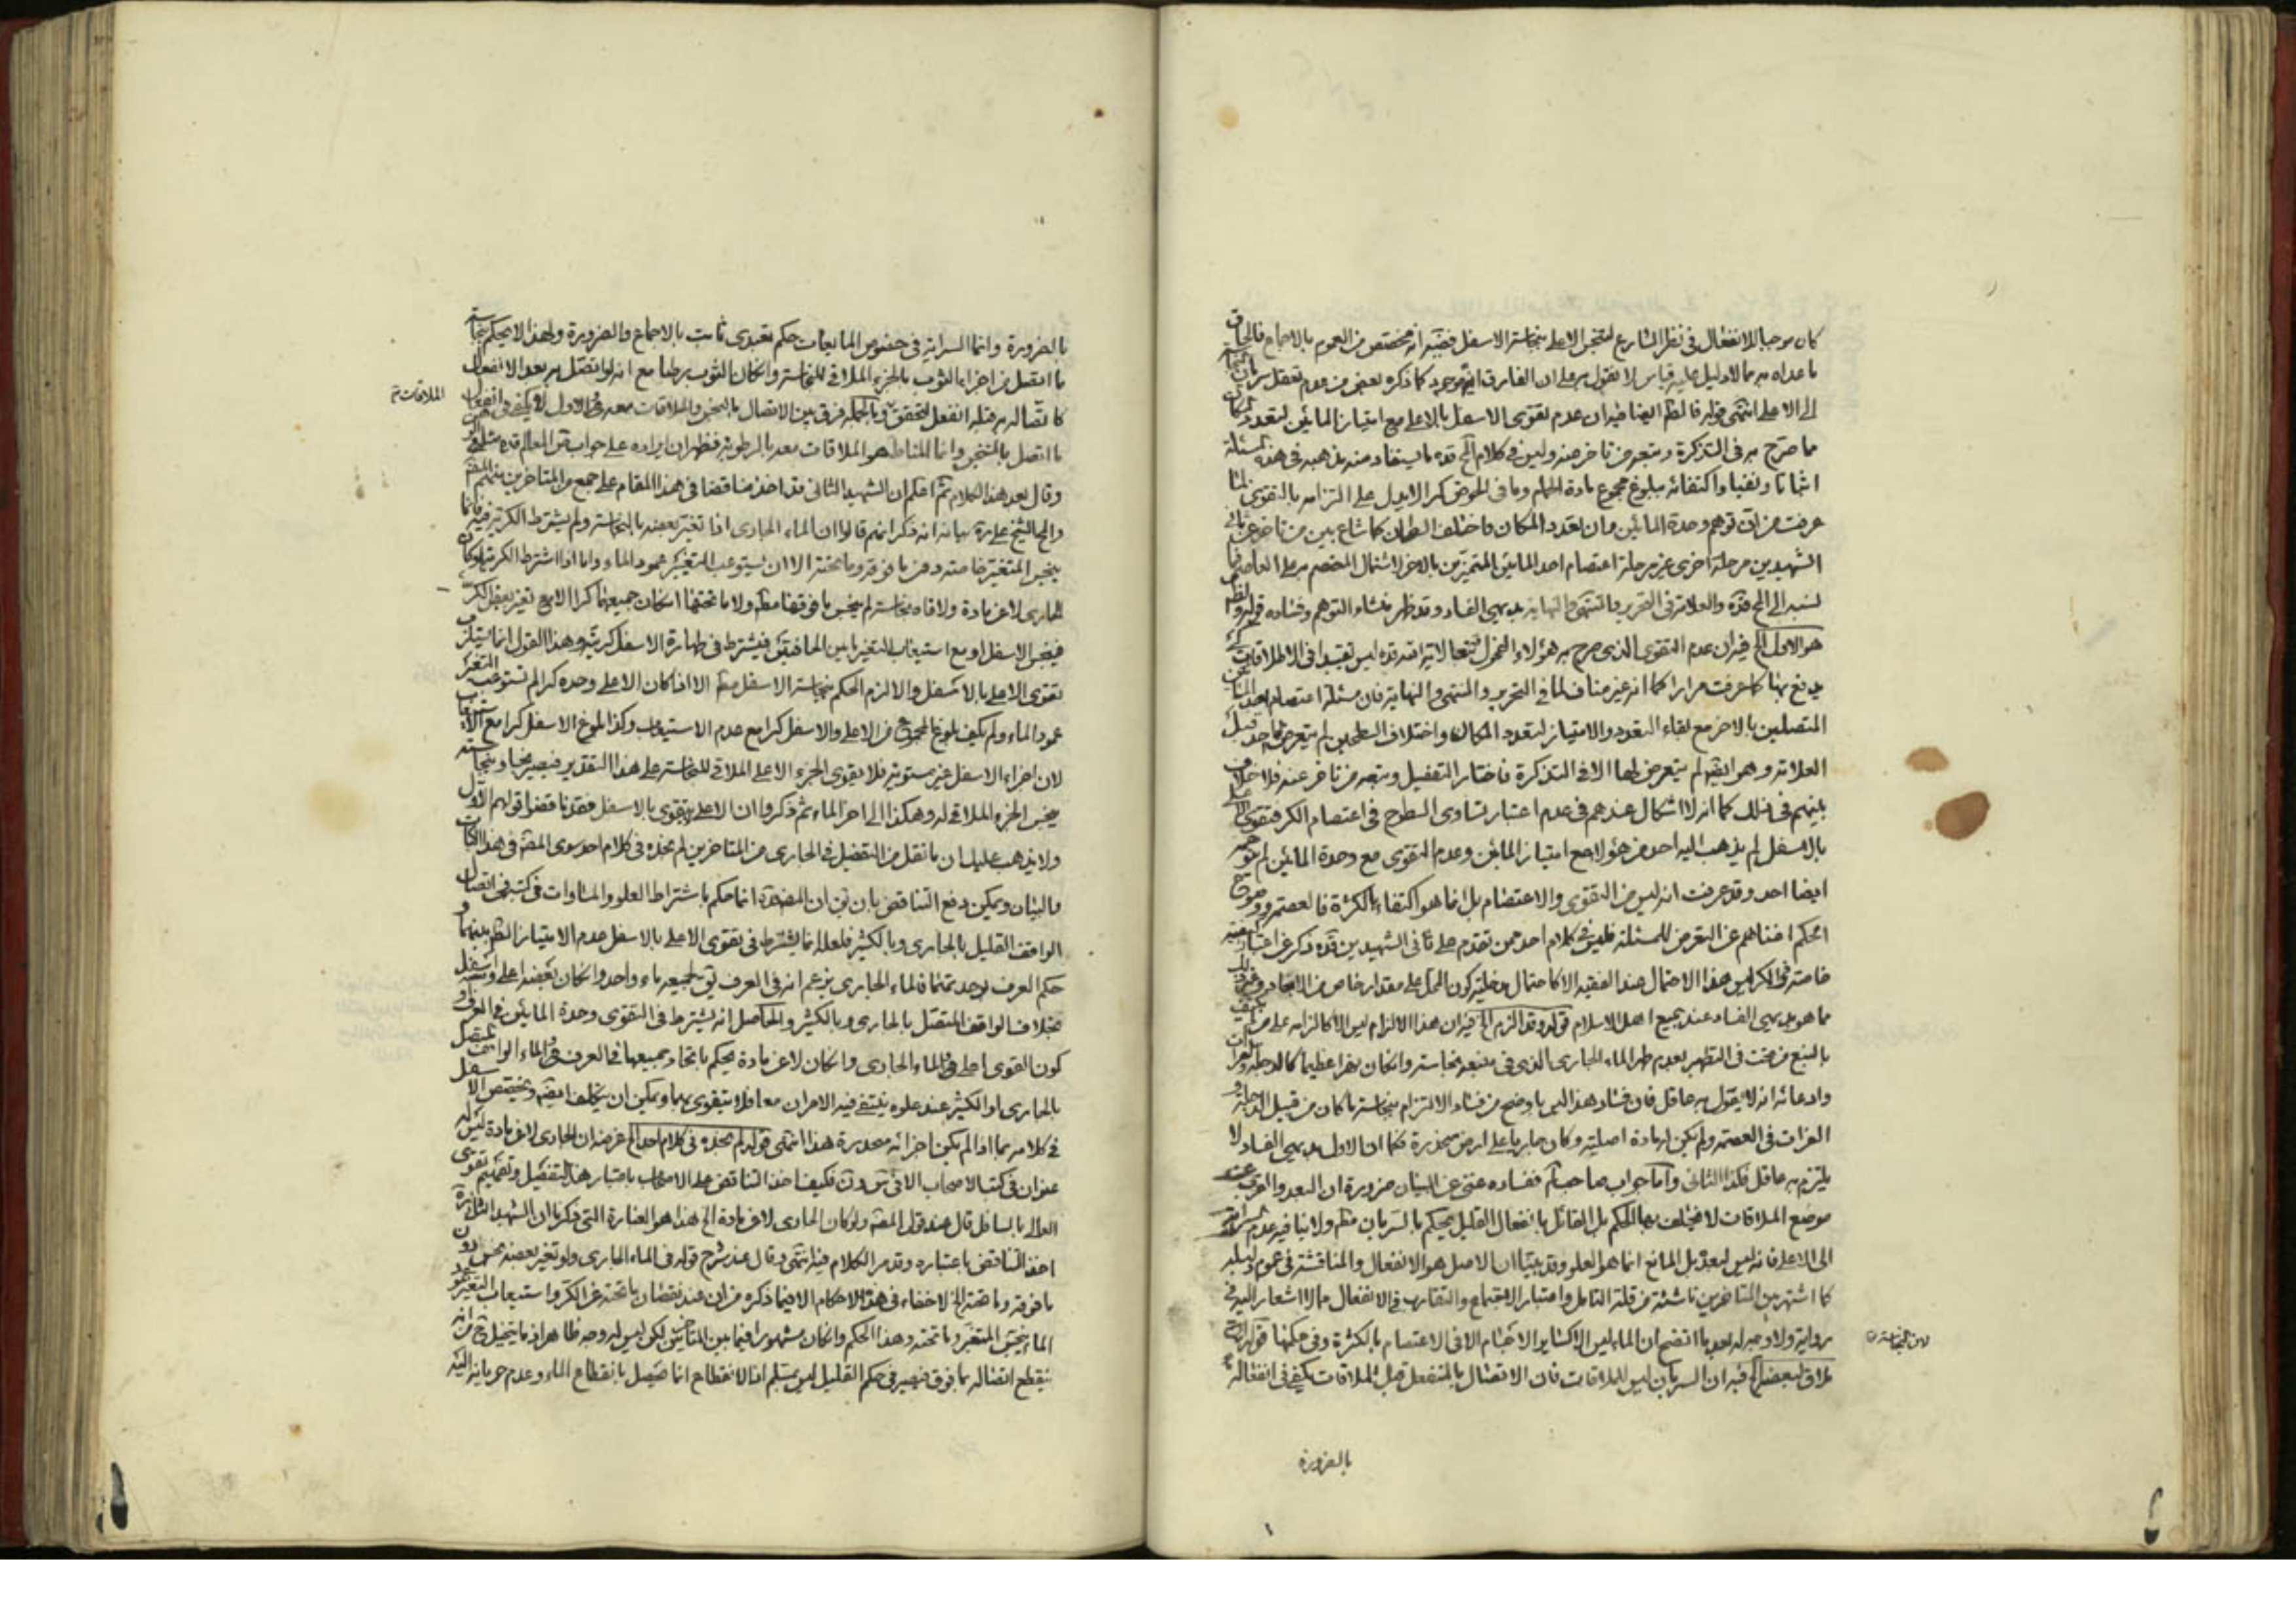 كان موجبا للانفعال فى نظر الشارع لتنجس الاعلى بنجاسة الاسفل ففيه انه مختص من العموم بالاجماع فالحاق
ما عداه به مما لا دليل عليه قياس لا نقول به على ان الفارق ايضا موجود كما ذكره بعض من عدم تعقل سريان النجاسة
الى الاعلى انتهى قوله فالظم ايضا فيه ان عدم تقوى الاسفل بالاعلى مع امتياز المائين لتعدد المكان
مما صرح به فى التذكرة وتبعه من تاخر عنه وليس فى كلام قده ما يستفاد منه مذهبه فى هذه المسئلة
اثباتا ونفيا واكتفائه ببلوغ مجموع مادة الحمام وما فى الحوض كرا لا يدل على التزامه بالتقوى لما
عرفت من ان توهم وحدة المائين وان تعدد المكان واختلف السطحان كما شاع بين من تاخر عن ثانى
الشهيدين مرحلة اخرى غير مرحلة اعتصام احد المائين المتميزين بالاخر لاشتمال المعتصم به على العاصم فما
نسبه الى المح قده والعلامة فى التحرير والمنتهى والنهاية بديهى الفساد وقد ظهر منشاء التوهم وفساده قوله والظم
هو الاول الخ فيه ان عدم التقوى الذى صرح به هؤلاء الفحول تبعا لاية الله قده ليس تقييدا فى الاطلاقات كى
يدفع بها كما عرفت مرارا كما انه غير مناف لما فى التحرير والمنتهى والنهاية فان مسئلة اعتصام احد المائين
المتصلين بالاخر مع بقاء التعدد والامتياز لتعدد المكان واختلاف السطحين لم يتعرض لها احد قبل
العلامة وهو ايضا لم يتعرض لها الا فى التذكرة فاختار التفصيل وتبعه من تاخر عنه فلا خلاف
بينهم فى ذلك كما انه لا اشكال عندهم فى عدم اعتبار تساوى السطوح فى اعتصام الكر فتقوى الاعلى
بالاسفل لم يذهب اليه احد من هؤلاء مع امتياز المائين وعدم التقوى مع وحدة المائين لم يتوهمه
ايضا احد وقد عرفت انه ليس من التقوى والاعتصام بل انما هو اكتفاء بالكثرة فالعصمة ووضوح
الحكم اغناهم عن التعرض للمسئلة فليس فى كلام احد ممن تقدم على ثانى الشهيدين قده ذكر عن اعتبار كيفية
خاصة فى الكر وليس هذا الاحتمال عند الفقيه الا كاحتمال مدخلية كون المحل على مقدار خاص من الابعاد وغير ذلك
مما هو بديهى الفساد عند جميع اهل الاسلام قوله وقد الزم الخ فيه ان هذا الالزام ليس الا كالزامه على من يكتفى
بالنبع من تحت فى التطهير بعدم طهر الماء الجارى الذى فى منبعه نجاسة وان كان نهرا عظيما كالدجلة والفرات
وادعائه انه لا يقول به عاقل فان فساد هذا ليس باوضح من فساد الالتزام بنجاسة ما كان من قبيل الدجلة و
الفرات فى العصمة ولم يكن له مادة اصلية وكان جاريا على ارض منحدرة فكما ان الاول بديهى الفساد لا
يلتزم به عاقل فكذا الثانى واما جواب صاحب لم ففساده غنى عن البيان ضرورة ان البعد والقرب عن
موضع الملاقات لا يختلف بهما الحكم بل القائل بانفعال القليل يحكم بالسريان مطم ولا ينافيه عدم السراية
الى الاعلى فانه ليس لبعده بل المانع انما هو العلو وقد بينا ان الاصل هو الانفعال والمناقشة فى عموم دليله
كما اشتهر بين المتاخرين ناشئة من قلة التامل واعتبار الاجتماع والتقارب فى الانفعال مما لا اشعار اليه فى
رواية ولا وجه له بعد ما اتضح ان الماء ليس الا كساير الاجسام الا فى الاعتصام بالكثرة وفى حكمها قوله
ملاق لبعضه الخ فيه ان السريان ليس للملاقات فان الاتصال بالمنفعل قبل الملاقات يكفى فى انفعاله
لان النجاسة
بالضرورة
بالضرورة وانما السراية فى خصوص المايعات حكم تعبدى ثابت بالاجماع والضرورة ولهذا لا يحكم بنجاسة
ما اتصل من اجزاء الثوب بالجزء الملاقى للنجاسة وان كان الثوب رطبا مع انه لو اتصل به بعد الانفعال
كاتصاله به قبله انفعل لتحقق وبالجملة فرق بين الاتصال بالنجس والملاقات معه فى الاول لا يكفى فى انفعال
الملاقات
ما اتصل بالمتنجس وانما المناط هو الملاقات معه بالرطوبة فظهر ان ايراده على جواب المعالم قده
وقال بعد هذا الكلام ثم اعلم ان الشهيد الثانى قد اخذ مناقضا فى هذا المقام على جمع من المتاخرين منهم المصنف
والمح الشيخ على ره بيانه انه ذكر انهم قالوا ان الماء الجارى اذا تغير بعضه بالنجاسة ولم يشترط الكرية فيه فانما
ينجس المتغير خاصة دون ما فوقه وما تحته الا ان يستوعب التغيير عمود الماء واما اذا اشترط الكرية لو كان
الجارى لا عن مادة ولاقاه نجاسة لم ينجس ما فوقها مطم ولا ما تحتها ان كان جميعها كرا الا مع تغير بعض الكر
فينجس الاسفل او مع استيعاب التغير ما بين الحافتين فيشترط فى طهارة الاسفل كريته وهذا القول انما يستلزم
تقوى الاعلى بالاسفل والا لزم الحكم بنجاسة الاسفل مطم الا اذا كان الاعلى وحده كرا لم تستوعب المتغير
عمود الماء ولم يكف بلوغ المجموع من الاعلى والاسفل كرا مع عدم الاستيعاب وكذا بلوغ الاسفل كرا مع الاستيعاب
لان اجزاء الاسفل غير مستوية فلا يقوى الجزء الاعلى الملاقى للنجاسة على هذا التقدير فيصير نجسا وبنجاسته
ينجس الجزء الملاقى له وهكذا الى اخر الماء ثم ذكروا ان الاعلى لا يتقوى بالاسفل فقد ناقضوا قولهم الاول
ولا يذهب عليك ان ما نقل من التفصيل فى الجارى من المتاخرين لم نجده فى كلام احد سوى المصنف فى هذا الكتاب
والبيان ويمكن دفع التناقض بان يق ان المصنف انما حكم باشتراط العلو والمساوات فى كتبه فى اتصال
الواقف القليل بالجارى وبالكثير فلعله انما يشترط فى تقوى الاعلى بالاسفل عدم الامتياز الظم بينهما و
حكم العرف بوحدتهما فالماء الجارى يزعم انه فى العرف يق لجميعه ماء واحد وان كان بعضه اعلى وبعضه اسفل
بخلاف الواقف المتصل بالجارى وبالكثير والحاصل انه يشترط فى التقوى وحدة المائين فى العرف و
كون القوى اعلى ففى الماء الجارى وان كان لا عن مادة يحكم باتحاد جميعها فى العرف وفى الماء الواقف المتصل
بالجارى او الكثير عند علوه ينتفى فيه الامران معا فلا يتقوى بهما ويمكن ان يتكلف ايضا ويخصص الاسفل
فى كلامه بما اذا لم يكن اجزائه منحدرة هذا انتهى قوله لم نجده فى كلام احد الخ غرضه ان الجارى لا عن مادة ليس له
عنوان فى كتب الاصحاب الا فى س ون فكيف اخذ التناقض على الاصحاب باعتبار هذا التفصيل وتعميم تقوى
العالى بالسافل قال عند قول المصنف ولو كان الجارى لا عن مادة الخ هذا هو العبارة التى ذكرنا ان الشهيد الثانى ره
اخذ التناقض باعتباره وقد مر الكلام فيه انتهى وقال عند شرح قوله فى الماء الجارى ولو تغير بعضه نجس دون
ما فوقه وما تحته الخ لا خفاء فى هذه الاحكام الا فيما ذكره من ان عند نقصان ما تحته عن الكر واستيعاب التغير عمود
الماء ينجس المتغير وما تحته وهذا الحكم وان كان مشهورا فيما بين المتاخرين لكن ليس له وجه ظاهر اذ ما يتخيل فيه من انه
ينقطع اتصاله بما فوق فيصير فى حكم القليل ليس بمسلم اذ الانقطاع انما حصل بانقطاع الماء وعدم جريانه اليه